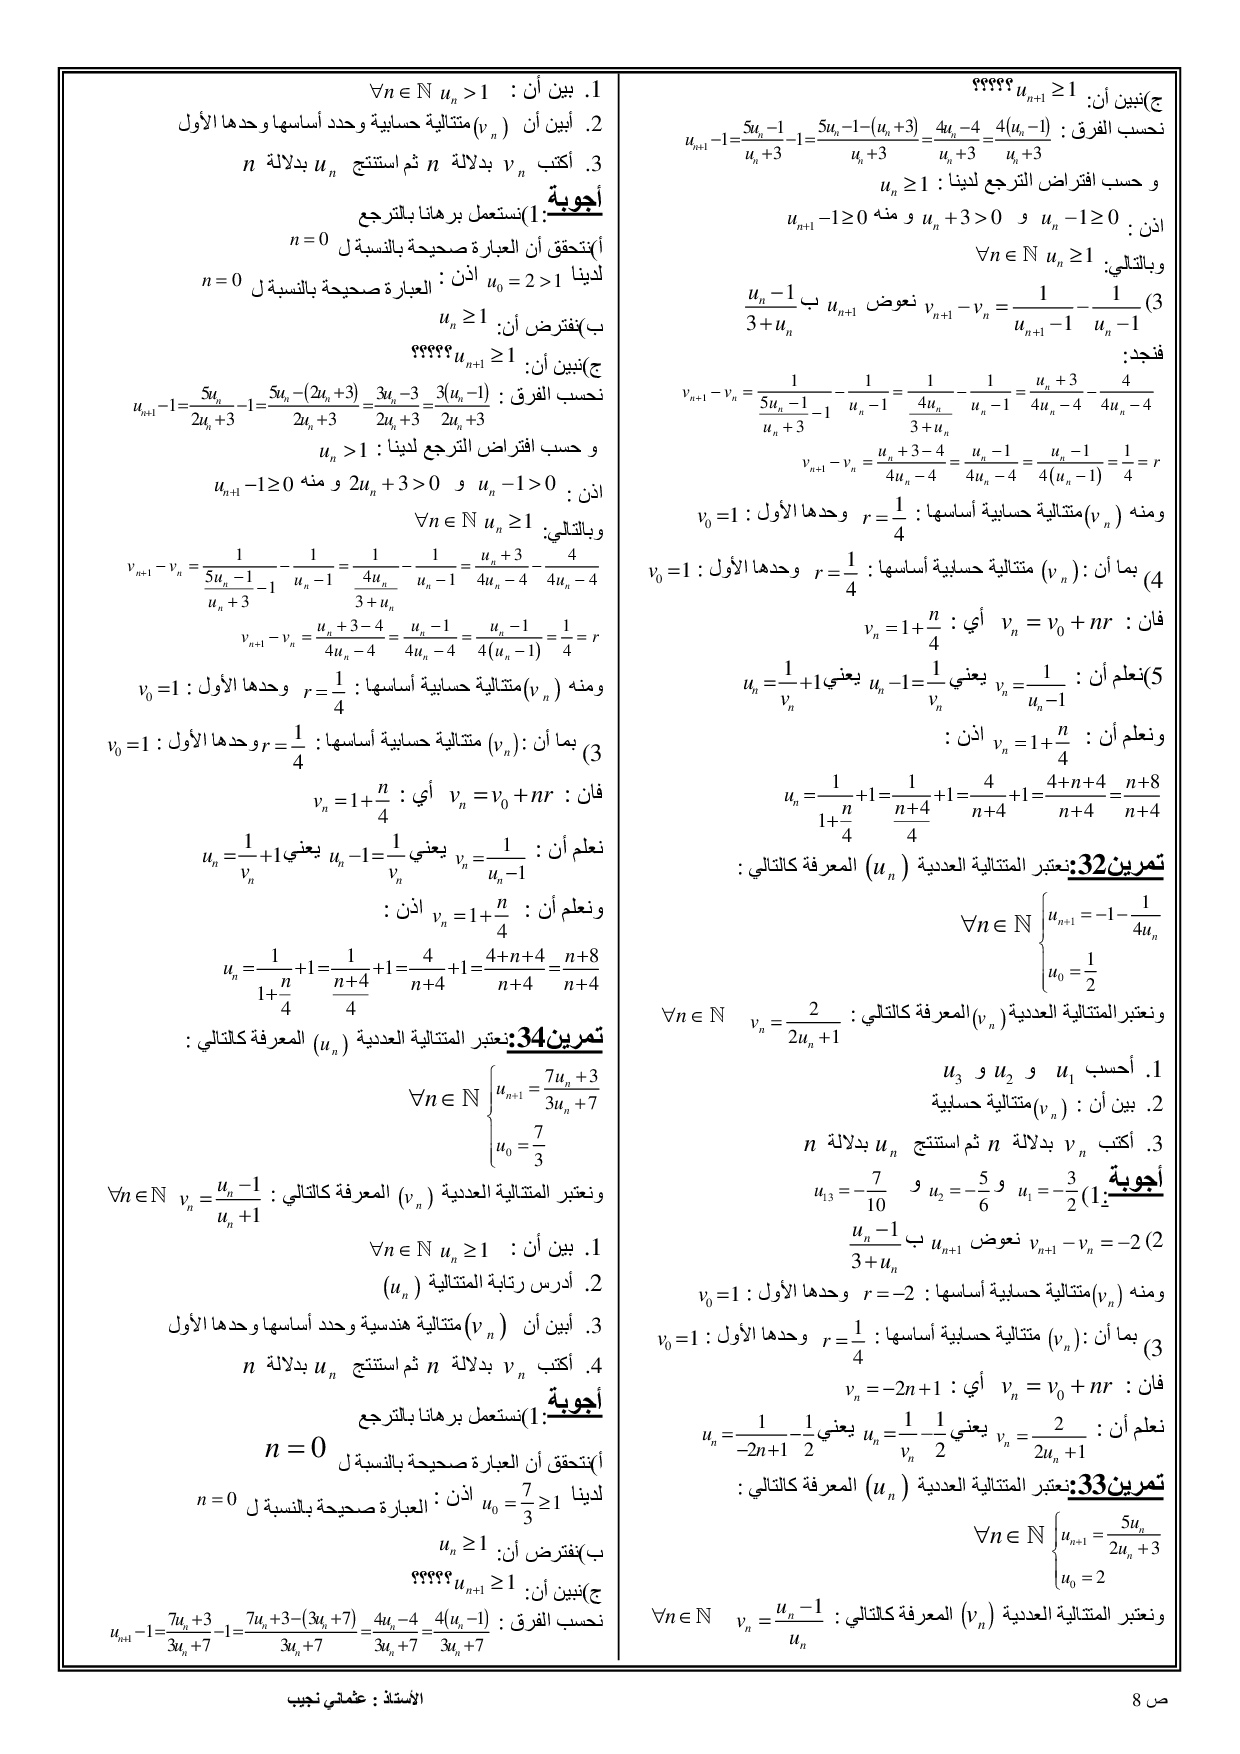 ج)نبين أن: $u_{n+1} \geq 1$ ؟؟؟؟؟
نحسب الفرق : $u_{n+1}-1=\frac{5u_n-1}{u_n+3}-1=\frac{5u_n-1-(u_n+3)}{u_n+3}=\frac{4u_n-4}{u_n+3}=\frac{4(u_n-1)}{u_n+3}$
و حسب افتراض الترجع لدينا : $u_n \geq 1$
اذن : $u_n-1 \geq 0$ و $u_n+3>0$ و منه $u_{n+1}-1 \geq 0$
وبالتالي: $\forall n \in \mathbb{N} \; u_n \geq 1$
3) $v_{n+1}-v_n=\frac{1}{u_{n+1}-1}-\frac{1}{u_n-1}$ نعوض $u_{n+1}$ ب $\frac{u_n-1}{3+u_n}$
فنجد:
$v_{n+1}-v_n=\frac{1}{\frac{5u_n-1}{u_n+3}-1}-\frac{1}{u_n-1}=\frac{1}{\frac{4u_n}{3+u_n}}-\frac{1}{u_n-1}=\frac{u_n+3}{4u_n-4}-\frac{4}{4u_n-4}$
$v_{n+1}-v_n=\frac{u_n+3-4}{4u_n-4}=\frac{u_n-1}{4u_n-4}=\frac{u_n-1}{4(u_n-1)}=\frac{1}{4}=r$
ومنه $(v_n)$ متتالية حسابية أساسها : $r=\frac{1}{4}$ وحدها الأول : $v_0=1$
4) بما أن : $(v_n)$ متتالية حسابية أساسها : $r=\frac{1}{4}$ وحدها الأول : $v_0=1$
فان : $v_n=v_0+nr$ أي : $v_n=1+\frac{n}{4}$
5)نعلم أن : $v_n=\frac{1}{u_n-1}$ يعني $u_n-1=\frac{1}{v_n}$ يعني $u_n=\frac{1}{v_n}+1$
ونعلم أن : $v_n=1+\frac{n}{4}$ اذن :
$u_n=\frac{1}{1+\frac{n}{4}}+1=\frac{1}{\frac{n+4}{4}}+1=\frac{4}{n+4}+1=\frac{4+n+4}{n+4}=\frac{n+8}{n+4}$
تمرين32:نعتبر المتتالية العددية $(u_n)$ المعرفة كالتالي :
$\forall n \in \mathbb{N} \begin{cases} u_{n+1}=-1-\frac{1}{4u_n} \\ u_0=\frac{1}{2} \end{cases}$
ونعتبرالمتتالية العددية $(v_n)$ المعرفة كالتالي : $v_n=\frac{2}{2u_n+1}$ $\forall n \in \mathbb{N}$
1. أحسب $u_1$ و $u_2$ و $u_3$
2. بين أن : $(v_n)$ متتالية حسابية
3. أكتب $v_n$ بدلالة $n$ ثم استنتج $u_n$ بدلالة $n$
أجوبة :1) $u_1=-\frac{3}{2}$ و $u_2=-\frac{5}{6}$ و $u_{13}=-\frac{7}{10}$
2) $v_{n+1}-v_n=-2$ نعوض $u_{n+1}$ ب $\frac{u_n-1}{3+u_n}$
ومنه $(v_n)$ متتالية حسابية أساسها : $r=-2$ وحدها الأول : $v_0=1$
3) بما أن : $(v_n)$ متتالية حسابية أساسها : $r=\frac{1}{4}$ وحدها الأول : $v_0=1$
فان : $v_n=v_0+nr$ أي : $v_n=-2n+1$
نعلم أن : $v_n=\frac{2}{2u_n+1}$ يعني $u_n=\frac{1}{v_n}-\frac{1}{2}$ يعني $u_n=\frac{1}{-2n+1}-\frac{1}{2}$
تمرين33:نعتبر المتتالية العددية $(u_n)$ المعرفة كالتالي :
$\forall n \in \mathbb{N} \begin{cases} u_{n+1}=\frac{5u_n}{2u_n+3} \\ u_0=2 \end{cases}$
ونعتبر المتتالية العددية $(v_n)$ المعرفة كالتالي : $v_n=\frac{u_n-1}{u_n}$ $\forall n \in \mathbb{N}$
1. بين أن : $\forall n \in \mathbb{N} \; u_n>1$
2. أبين أن $(v_n)$ متتالية حسابية وحدد أساسها وحدها الأول
3. أكتب $v_n$ بدلالة $n$ ثم استنتج $u_n$ بدلالة $n$
أجوبة :1)نستعمل برهانا بالترجع
أ)نتحقق أن العبارة صحيحة بالنسبة ل $n=0$
لدينا $u_0=2>1$ اذن : العبارة صحيحة بالنسبة ل $n=0$
ب)نفترض أن: $u_n \geq 1$
ج)نبين أن: $u_{n+1} \geq 1$ ؟؟؟؟؟
نحسب الفرق : $u_{n+1}-1=\frac{5u_n}{2u_n+3}-1=\frac{5u_n-(2u_n+3)}{2u_n+3}=\frac{3u_n-3}{2u_n+3}=\frac{3(u_n-1)}{2u_n+3}$
و حسب افتراض الترجع لدينا : $u_n>1$
اذن : $u_n-1>0$ و $2u_n+3>0$ و منه $u_{n+1}-1 \geq 0$
وبالتالي: $\forall n \in \mathbb{N} \; u_n \geq 1$
$v_{n+1}-v_n=\frac{1}{\frac{5u_n-1}{u_n+3}-1}-\frac{1}{u_n-1}=\frac{1}{\frac{4u_n}{3+u_n}}-\frac{1}{u_n-1}=\frac{u_n+3}{4u_n-4}-\frac{4}{4u_n-4}$
$v_{n+1}-v_n=\frac{u_n+3-4}{4u_n-4}=\frac{u_n-1}{4u_n-4}=\frac{u_n-1}{4(u_n-1)}=\frac{1}{4}=r$
ومنه $(v_n)$ متتالية حسابية أساسها : $r=\frac{1}{4}$ وحدها الأول : $v_0=1$
3) بما أن : $(v_n)$ متتالية حسابية أساسها : $r=\frac{1}{4}$ وحدها الأول : $v_0=1$
فان : $v_n=v_0+nr$ أي : $v_n=1+\frac{n}{4}$
نعلم أن : $v_n=\frac{1}{u_n-1}$ يعني $u_n-1=\frac{1}{v_n}$ يعني $u_n=\frac{1}{v_n}+1$
ونعلم أن : $v_n=1+\frac{n}{4}$ اذن :
$u_n=\frac{1}{1+\frac{n}{4}}+1=\frac{1}{\frac{n+4}{4}}+1=\frac{4}{n+4}+1=\frac{4+n+4}{n+4}=\frac{n+8}{n+4}$
تمرين34:نعتبر المتتالية العددية $(u_n)$ المعرفة كالتالي :
$\forall n \in \mathbb{N} \begin{cases} u_{n+1}=\frac{7u_n+3}{3u_n+7} \\ u_0=\frac{7}{3} \end{cases}$
ونعتبر المتتالية العددية $(v_n)$ المعرفة كالتالي : $v_n=\frac{u_n-1}{u_n+1}$ $\forall n \in \mathbb{N}$
1. بين أن : $\forall n \in \mathbb{N} \; u_n \geq 1$
2. أدرس رتابة المتتالية $(u_n)$
3. أبين أن $(v_n)$ متتالية هندسية وحدد أساسها وحدها الأول
4. أكتب $v_n$ بدلالة $n$ ثم استنتج $u_n$ بدلالة $n$
أجوبة :1)نستعمل برهانا بالترجع
أ)نتحقق أن العبارة صحيحة بالنسبة ل $n=0$
لدينا $u_0=\frac{7}{3} \geq 1$ اذن : العبارة صحيحة بالنسبة ل $n=0$
ب)نفترض أن: $u_n \geq 1$
ج)نبين أن: $u_{n+1} \geq 1$ ؟؟؟؟؟
نحسب الفرق : $u_{n+1}-1=\frac{7u_n+3}{3u_n+7}-1=\frac{7u_n+3-(3u_n+7)}{3u_n+7}=\frac{4u_n-4}{3u_n+7}=\frac{4(u_n-1)}{3u_n+7}$
ص 8
الأستاذ : عثماني نجيب